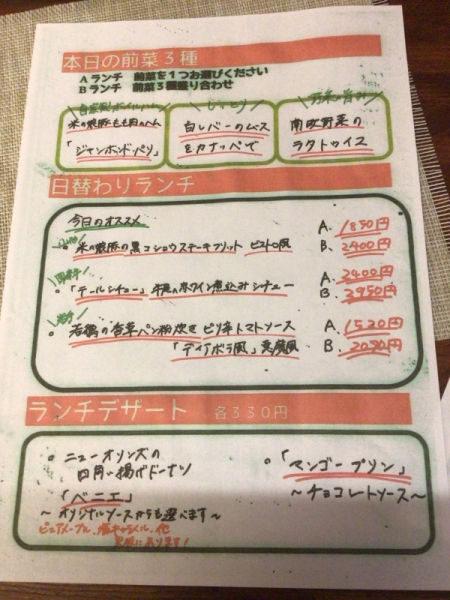 本日の前菜3種
Aランチ 前菜を1つお選びください
Bランチ 前菜3種盛り合わせ
米の娘豚もも肉のハム
「ジャンボンド・パリ」
しっとり
白レバーのムース
をカナッペで
野菜の旨み
南欧野菜の
ラタトゥイユ
日替わりランチ
今日のオススメ
米の娘豚の黒コショウステーキフリット ビストロ風
A. 1850円
B. 2400円
「テールシチュー」牛尾の赤ワイン煮込みシチュー
A. 2400円
B. 2950円
若鶏の香草パン粉炊き ピリ辛トマトソース
「ディアボラ風」悪魔風
A. 1520円
B. 2050円
ランチデザート 各330円
ニューオリンズの
四角い揚げドーナツ
「ベニエ」
〜オリジナルソースからも選べます〜
ピュアメープル、塩キャラメル、他
「マンゴープリン」
〜チョコレートソース〜